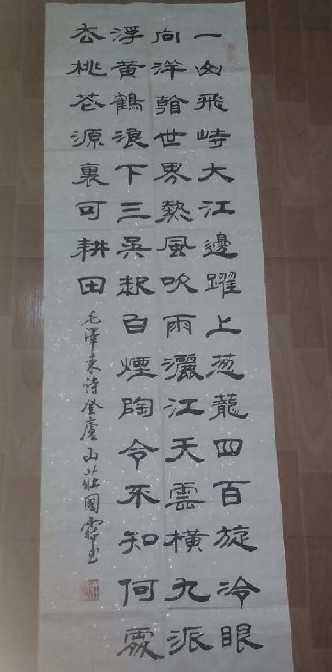 一山飛峙大江邊躍上葱蘢四百旋冷眼
向洋看世界熱風吹雨灑江天雲橫九派
浮黃鶴浪下三吳起白煙陶令不知何處
去桃花源裏可耕田
毛澤東詩登廬山莊國書